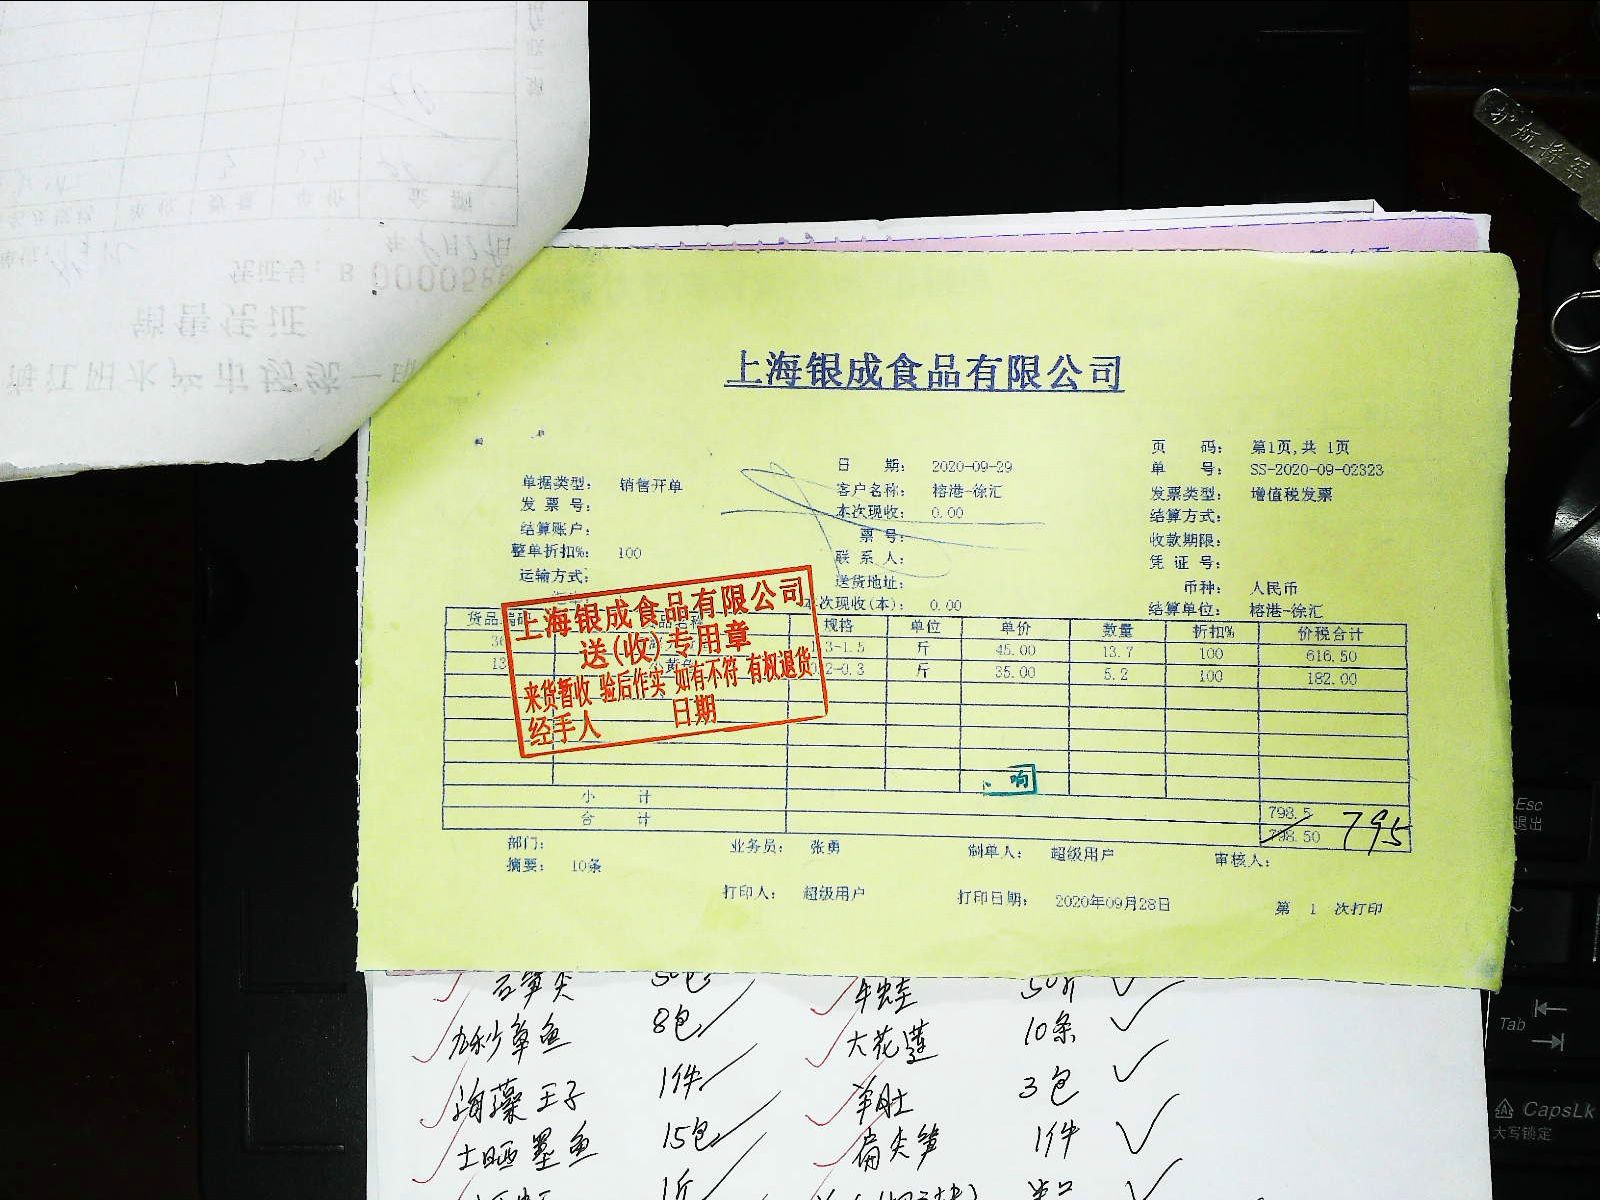 上海银成食品有限公司
页 码： 第1页,共 1页
日 期： 2020-09-29
单 号： SS-2020-09-02323
单据类型： 销售开单
客户名称： 榕港-徐汇
发票类型： 增值税发票
发 票 号：
本次现收： 0.00
结算方式：
结算账户：
票 号：
收款期限：
整单折扣%： 100
联 系 人：
凭 证 号：
运输方式：
送货地址：
币种： 人民币
本次现收(本)： 0.00
结算单位： 榕港-徐汇
货品编码 规格 单位 单价 数量 折扣% 价税合计
3-1.5 斤 45.00 13.7 100 616.50
小黄鱼 2-0.3 斤 35.00 5.2 100 182.00
上海银成食品有限公司
送(收)专用章
来货暂收 验后作实 如有不符 有权退货
经手人 日期
响
小 计 798.5
合 计 798.50 795
部门： 业务员： 张勇 制单人： 超级用户 审核人：
摘要： 10条
打印人： 超级用户 打印日期： 2020年09月28日 第 1 次打印
石笋尖 50包 牛蛙 50斤
九秒章鱼 8包 大花莲 10条
海藻王子 1件 羊肚 3包
土晒墨鱼 15包 扁尖笋 1件
1斤
销售凭证
凭证号：B 0000586
护航将军
Esc
退出
Tab
CapsLk
大写锁定